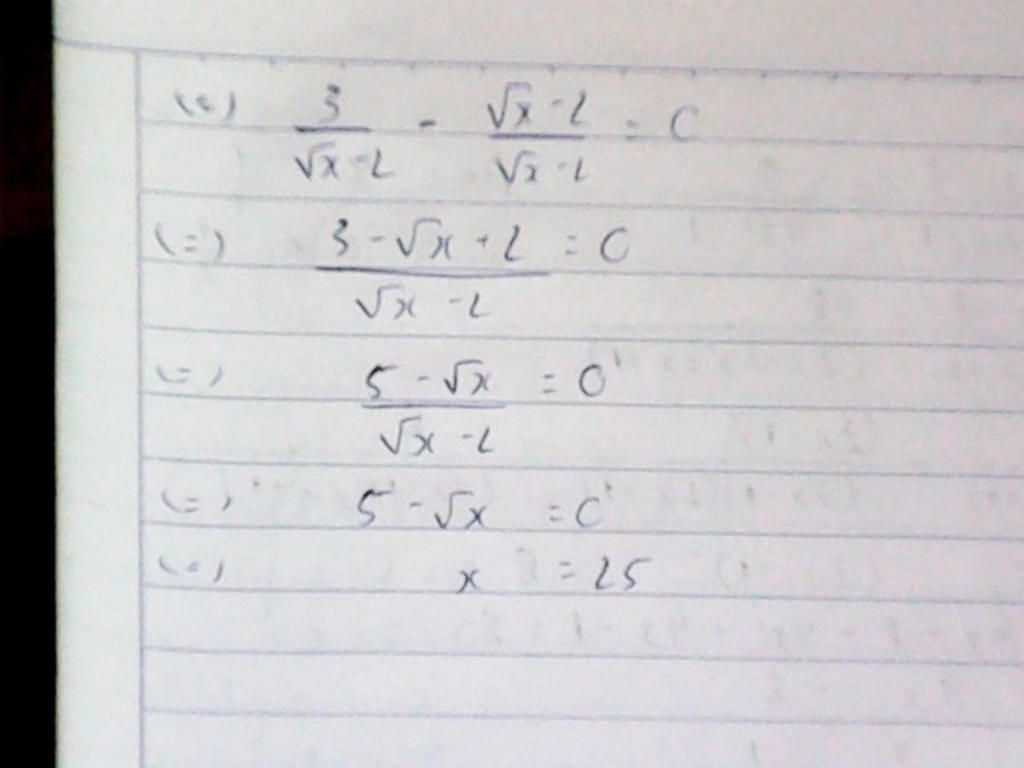 (=) 3/(√x - 2) - (√x - 2)/(√x - 2) = 0
(=) (3 - √x + 2)/(√x - 2) = 0
(=) (5 - √x)/(√x - 2) = 0
(=) 5 - √x = 0
(=) x = 25